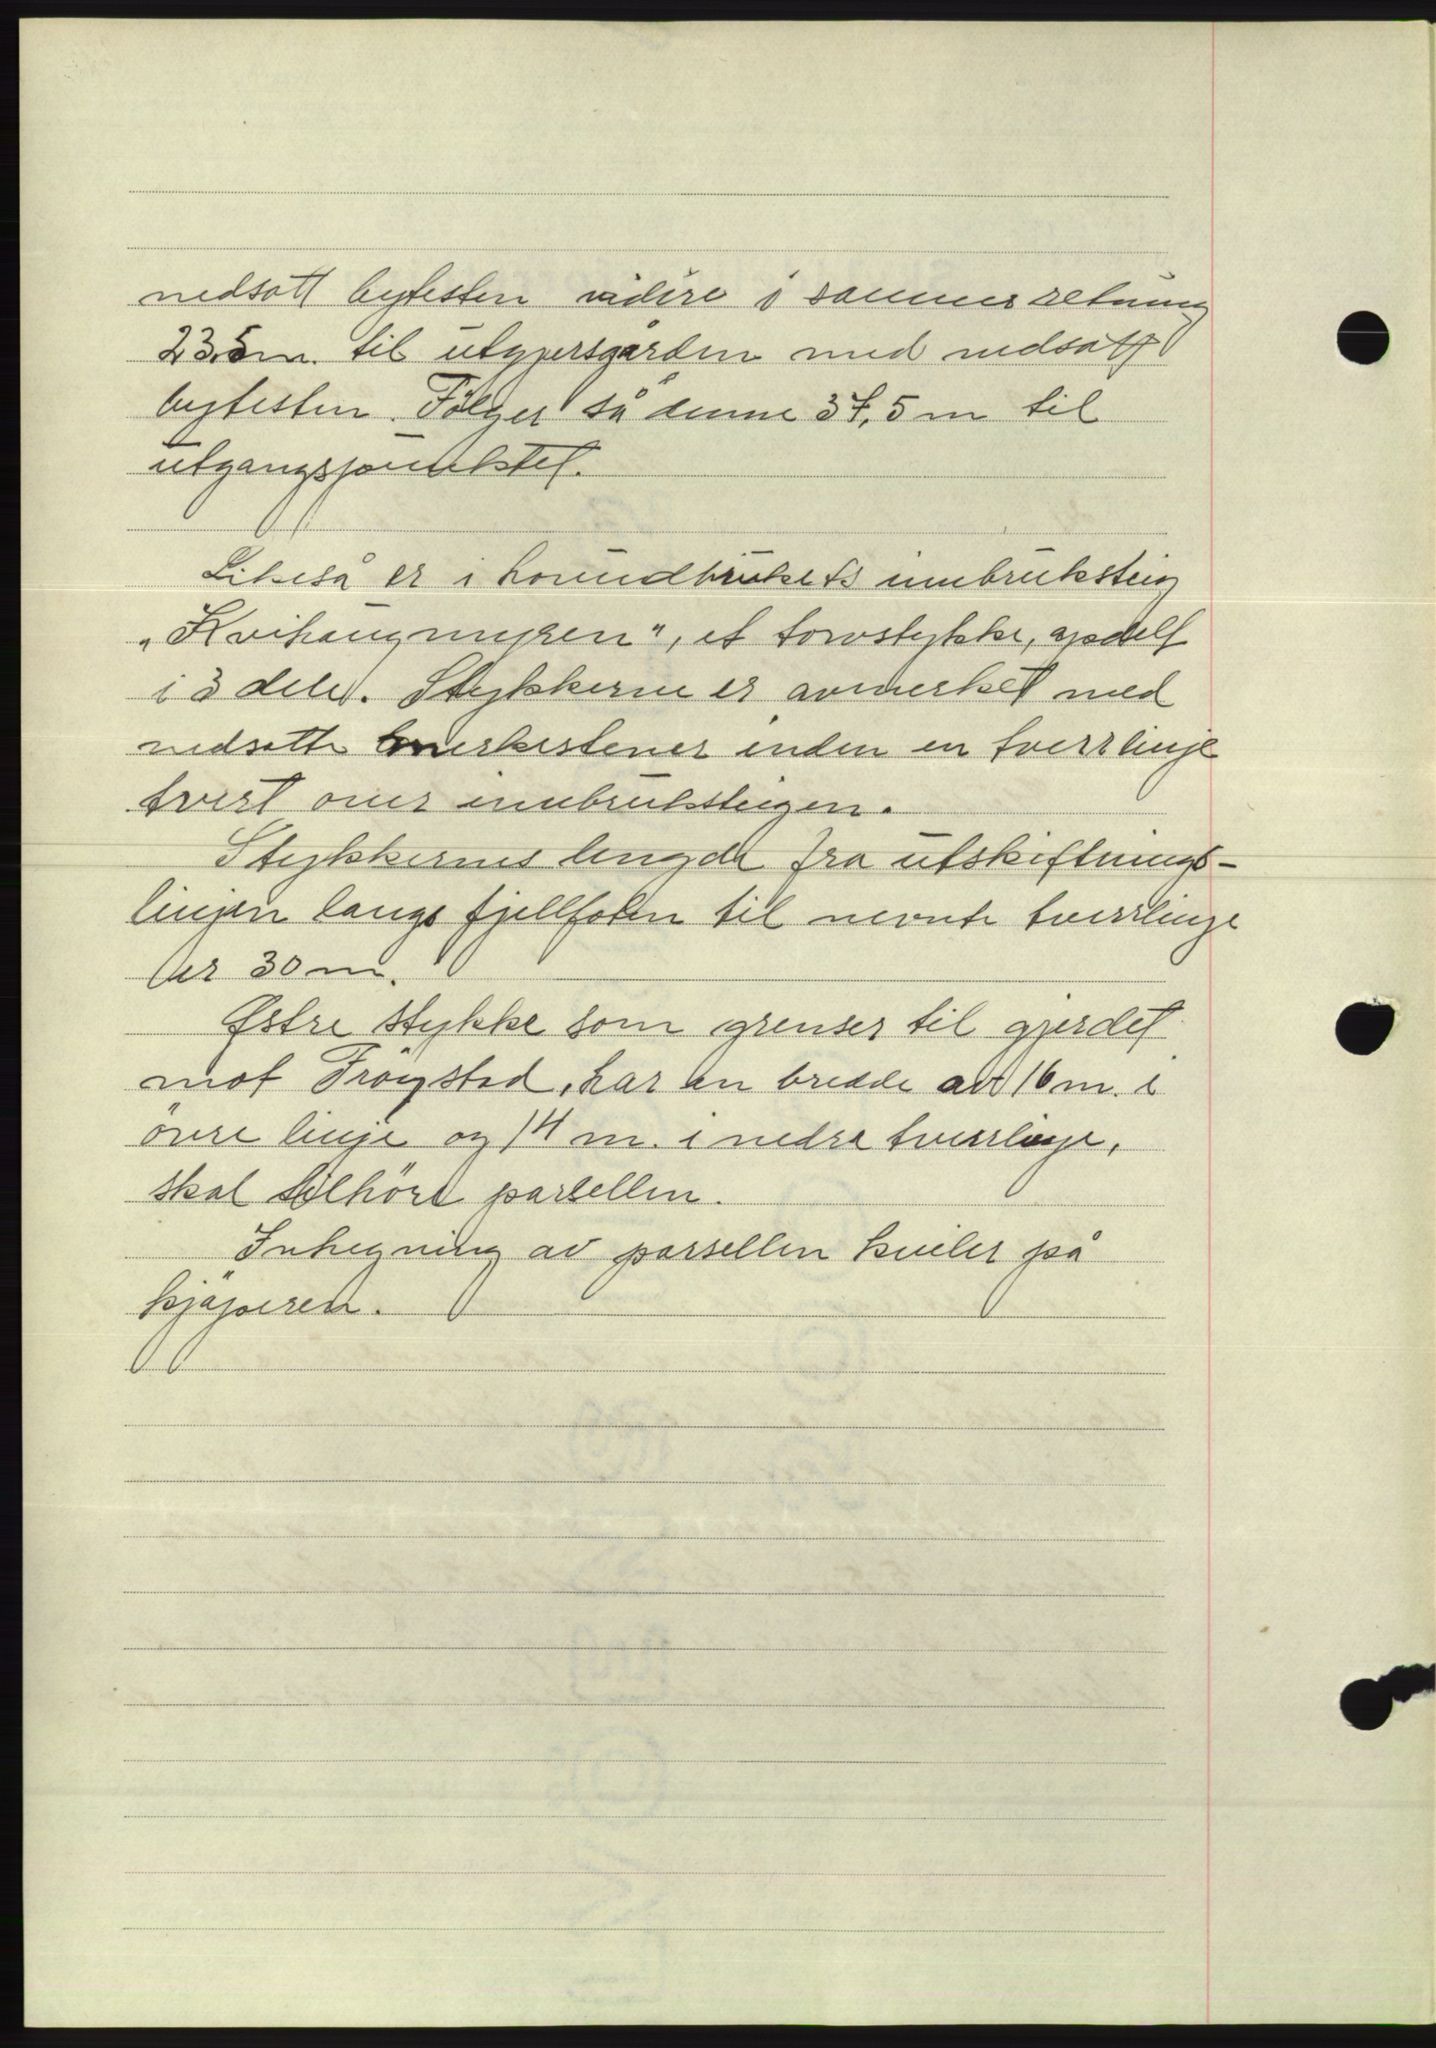 nedsatt bytesten vidire i sammer retning
23,5 m. til utgjersgården med nedsatt
bytesten. Følger så denne 37,5 m til
utgangspunktet.
Likeså er i hovudbrukets innbruksteig
„Kvihaugmyren", et torvstykke, opdelt
i 3 dele. Stykkerne er avmerket med
nedsatte merkestener inden en tverrlinje
tvert over innbruksteigen.
Stykkernes lengde fra utskiftnings-
linjen langs fjellfoten til nevnte tverrlinje
er 30 m.
Østre stykke som grenser til gjerdet
mot Fröystad, har en bredde av 16 m. i
övre linje og 14 m. i nedre tverrlinje,
skal tilhöre parsellen.
Inhegning av parsellen kviler på
kjöperen.